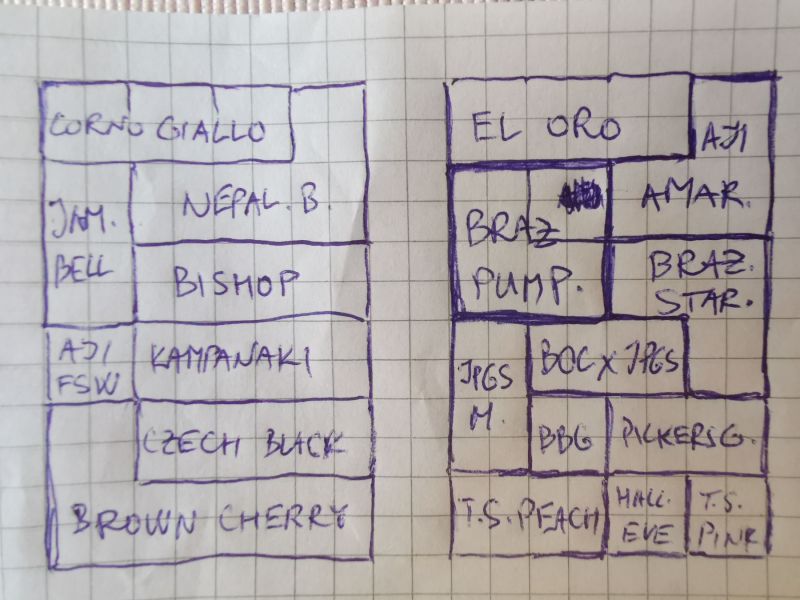 CORNO GIALLO
NEPAL. B.
JAM.
BELL
BISHOP
AJI
FSW
KAMPANAKI
CZECH BLACK
BROWN CHERRY
EL ORO
AJI
AMAR.
BRAZ
PUMP.
BRAZ.
STAR.
JPGS
M.
BOC X JPGS
BBG
PICKERSG.
T.S. PEACH
HALL.
EVE
T.S.
PINK